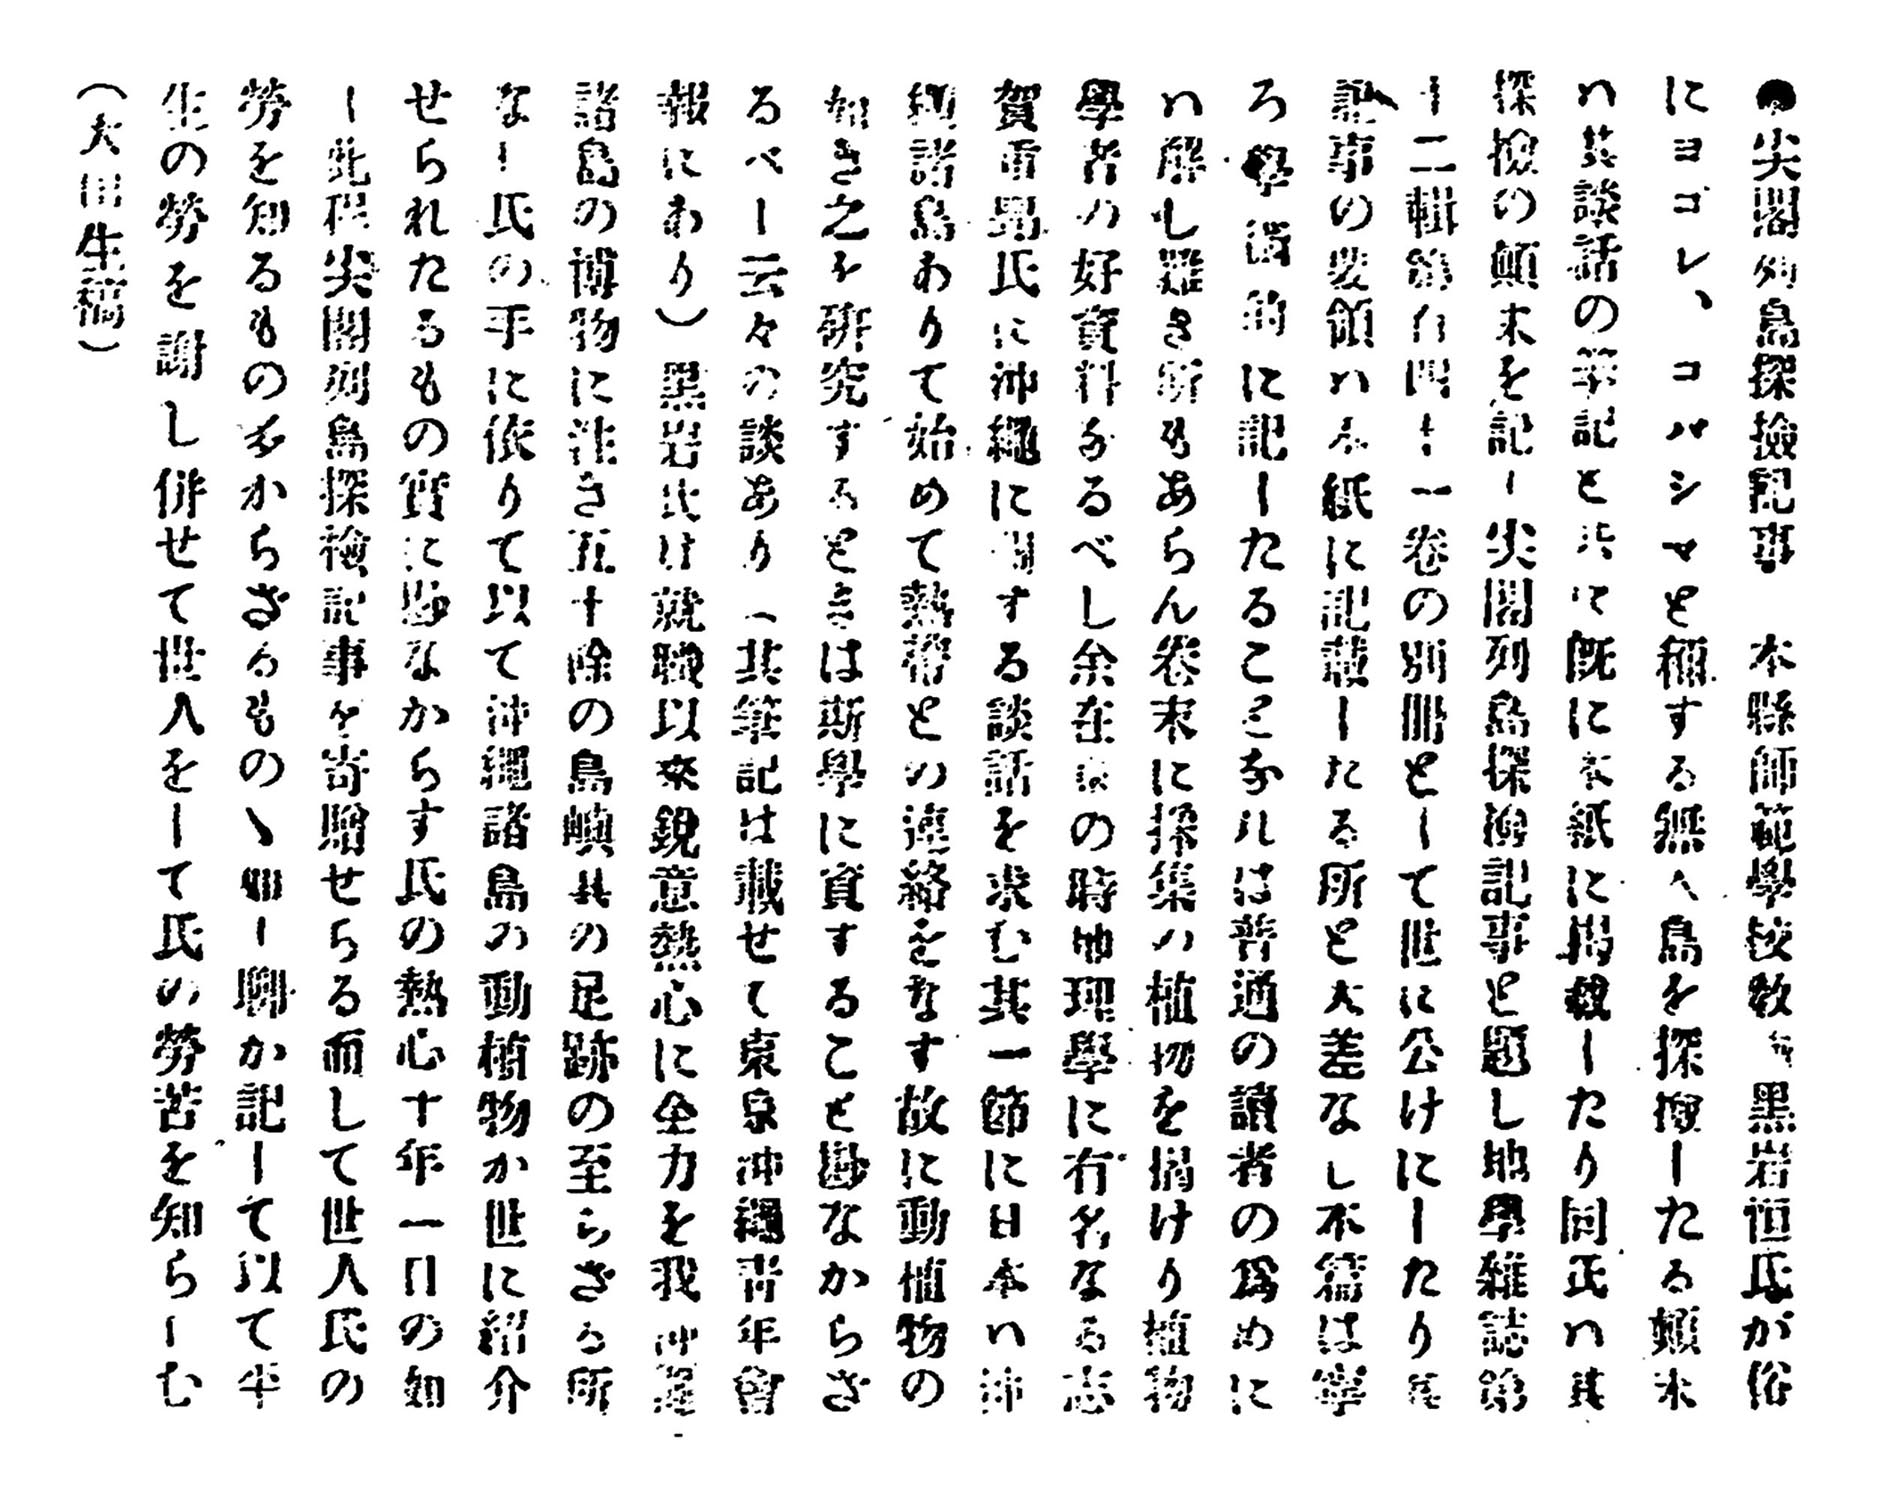 ●尖閣列島探撿記事　本縣師範學校敎諭黒岩恒氏が俗
にヨコレ、コバシマと稱する無人島を探撿したる顛末
ハ其談話の筆記と共に既に本紙に掲載したり同氏ハ其
探撿の顛末を記し尖閣列島探撿記事と題し地學雜誌第
十二輯第百四十一卷の別冊として世に公けにしたり其
記事の要領ハ本紙に記載したる所と大差なし本篇は寧
ろ學術的に記したることなれは普通の讀者の爲めに
ハ解し難き所もあらん卷末に採集の植物を掲けり植物
學者の好資料なるべし余在京の時地理學に有名なる志
賀重昂氏に沖繩に關する談話を求む其一節に日本ハ沖
繩諸島ありて始めて熱帶との連絡をなす故に動植物の
如き之を硏究するときは斯學に資すること尠なからさ
るべし云々の談あり（其筆記は載せて東京沖繩靑年會
報にあり）黒岩氏は就職以來銳意熱心に全力を我沖繩
諸島の博物に注き五十餘の島嶼其の足跡の至らざる所
なし氏の手に依りて以て沖繩諸島の動植物か世に紹介
せられたるもの實に尠なからす氏の熱心十年一日の如
し此程尖閣列島探撿記事を寄贈せらる而して世人氏の
勞を知るもの多からざるものゝ如し聊か記して以て平
生の勞を謝し併せて世人をして氏の勞苦を知らしむ
（大田生稿）